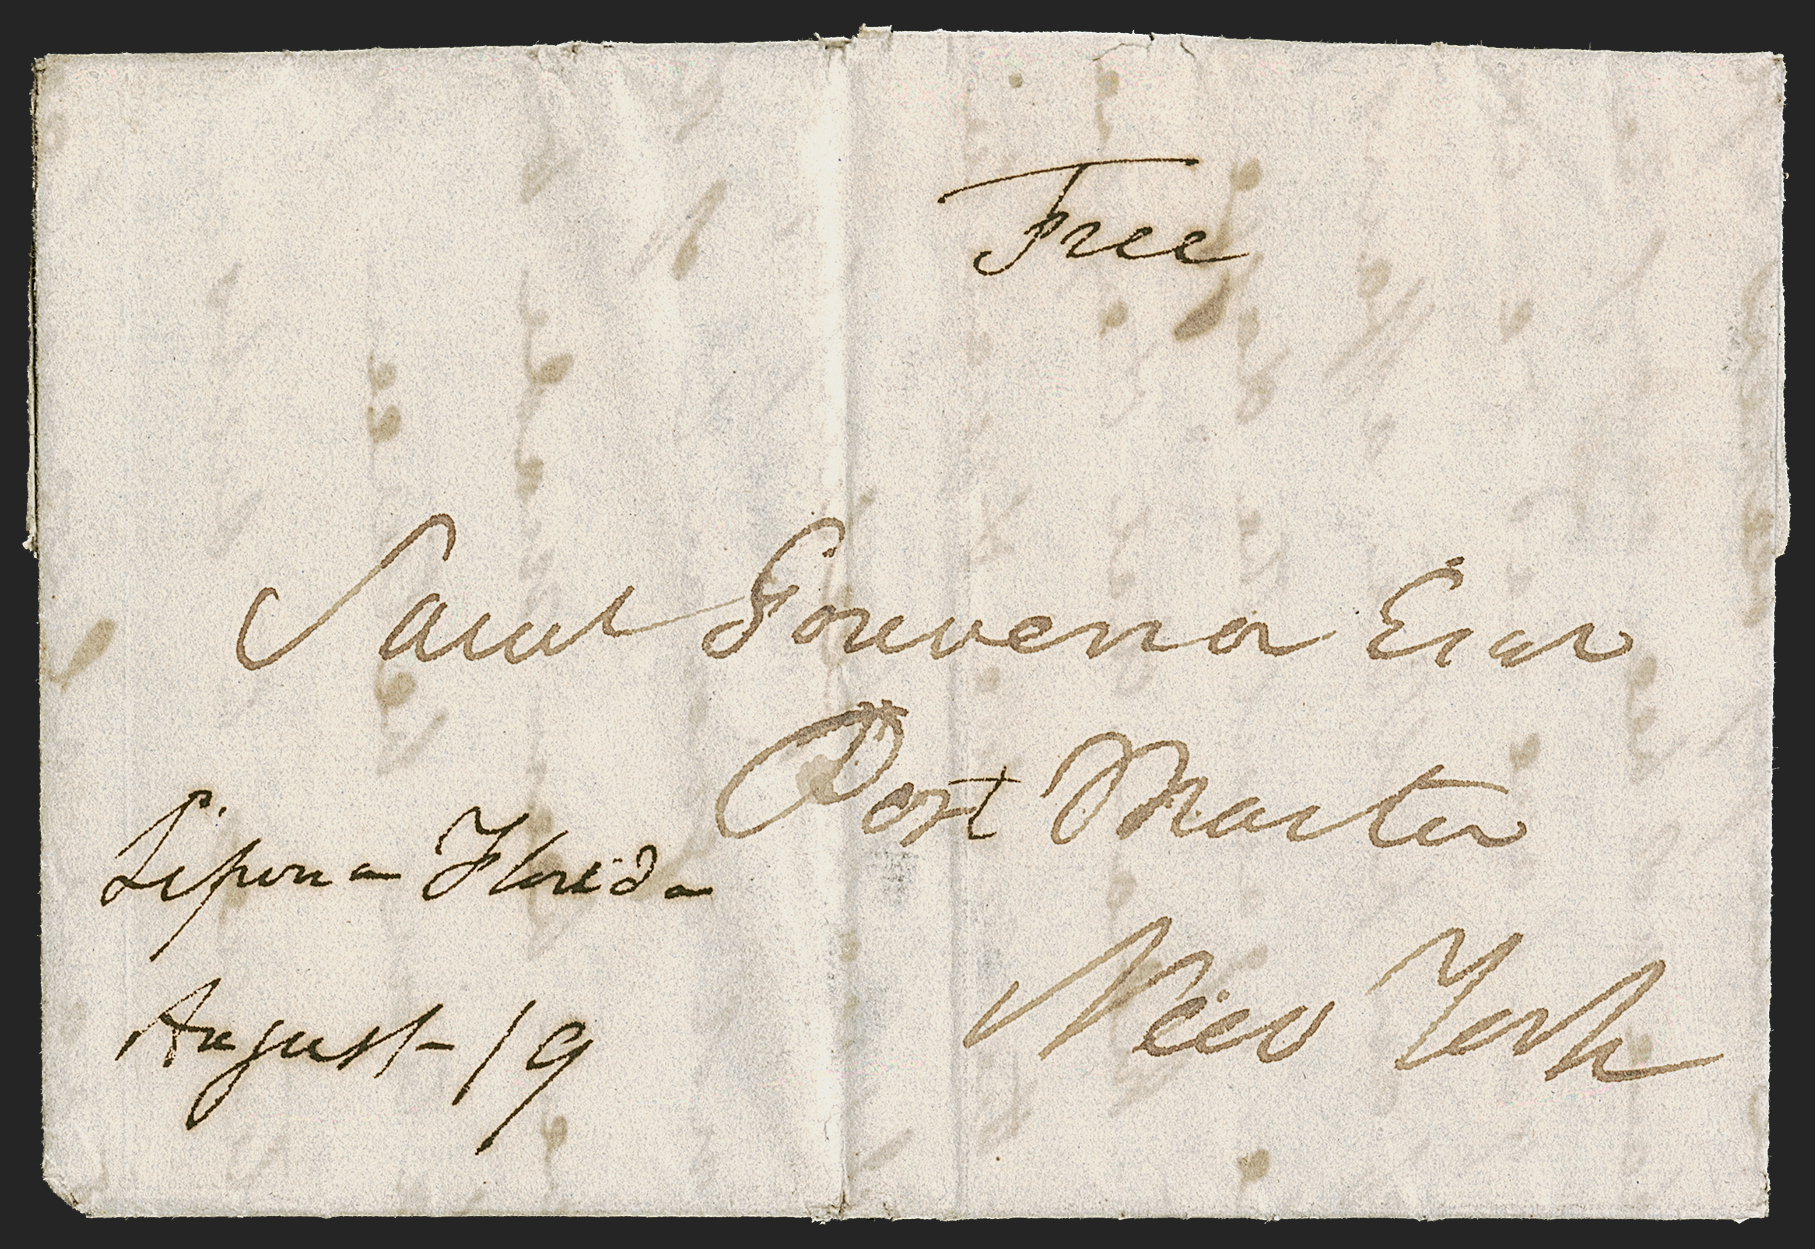 Free
Saml Gouverneur Esqr
Post Master
New York
Lipona Florida
August 19